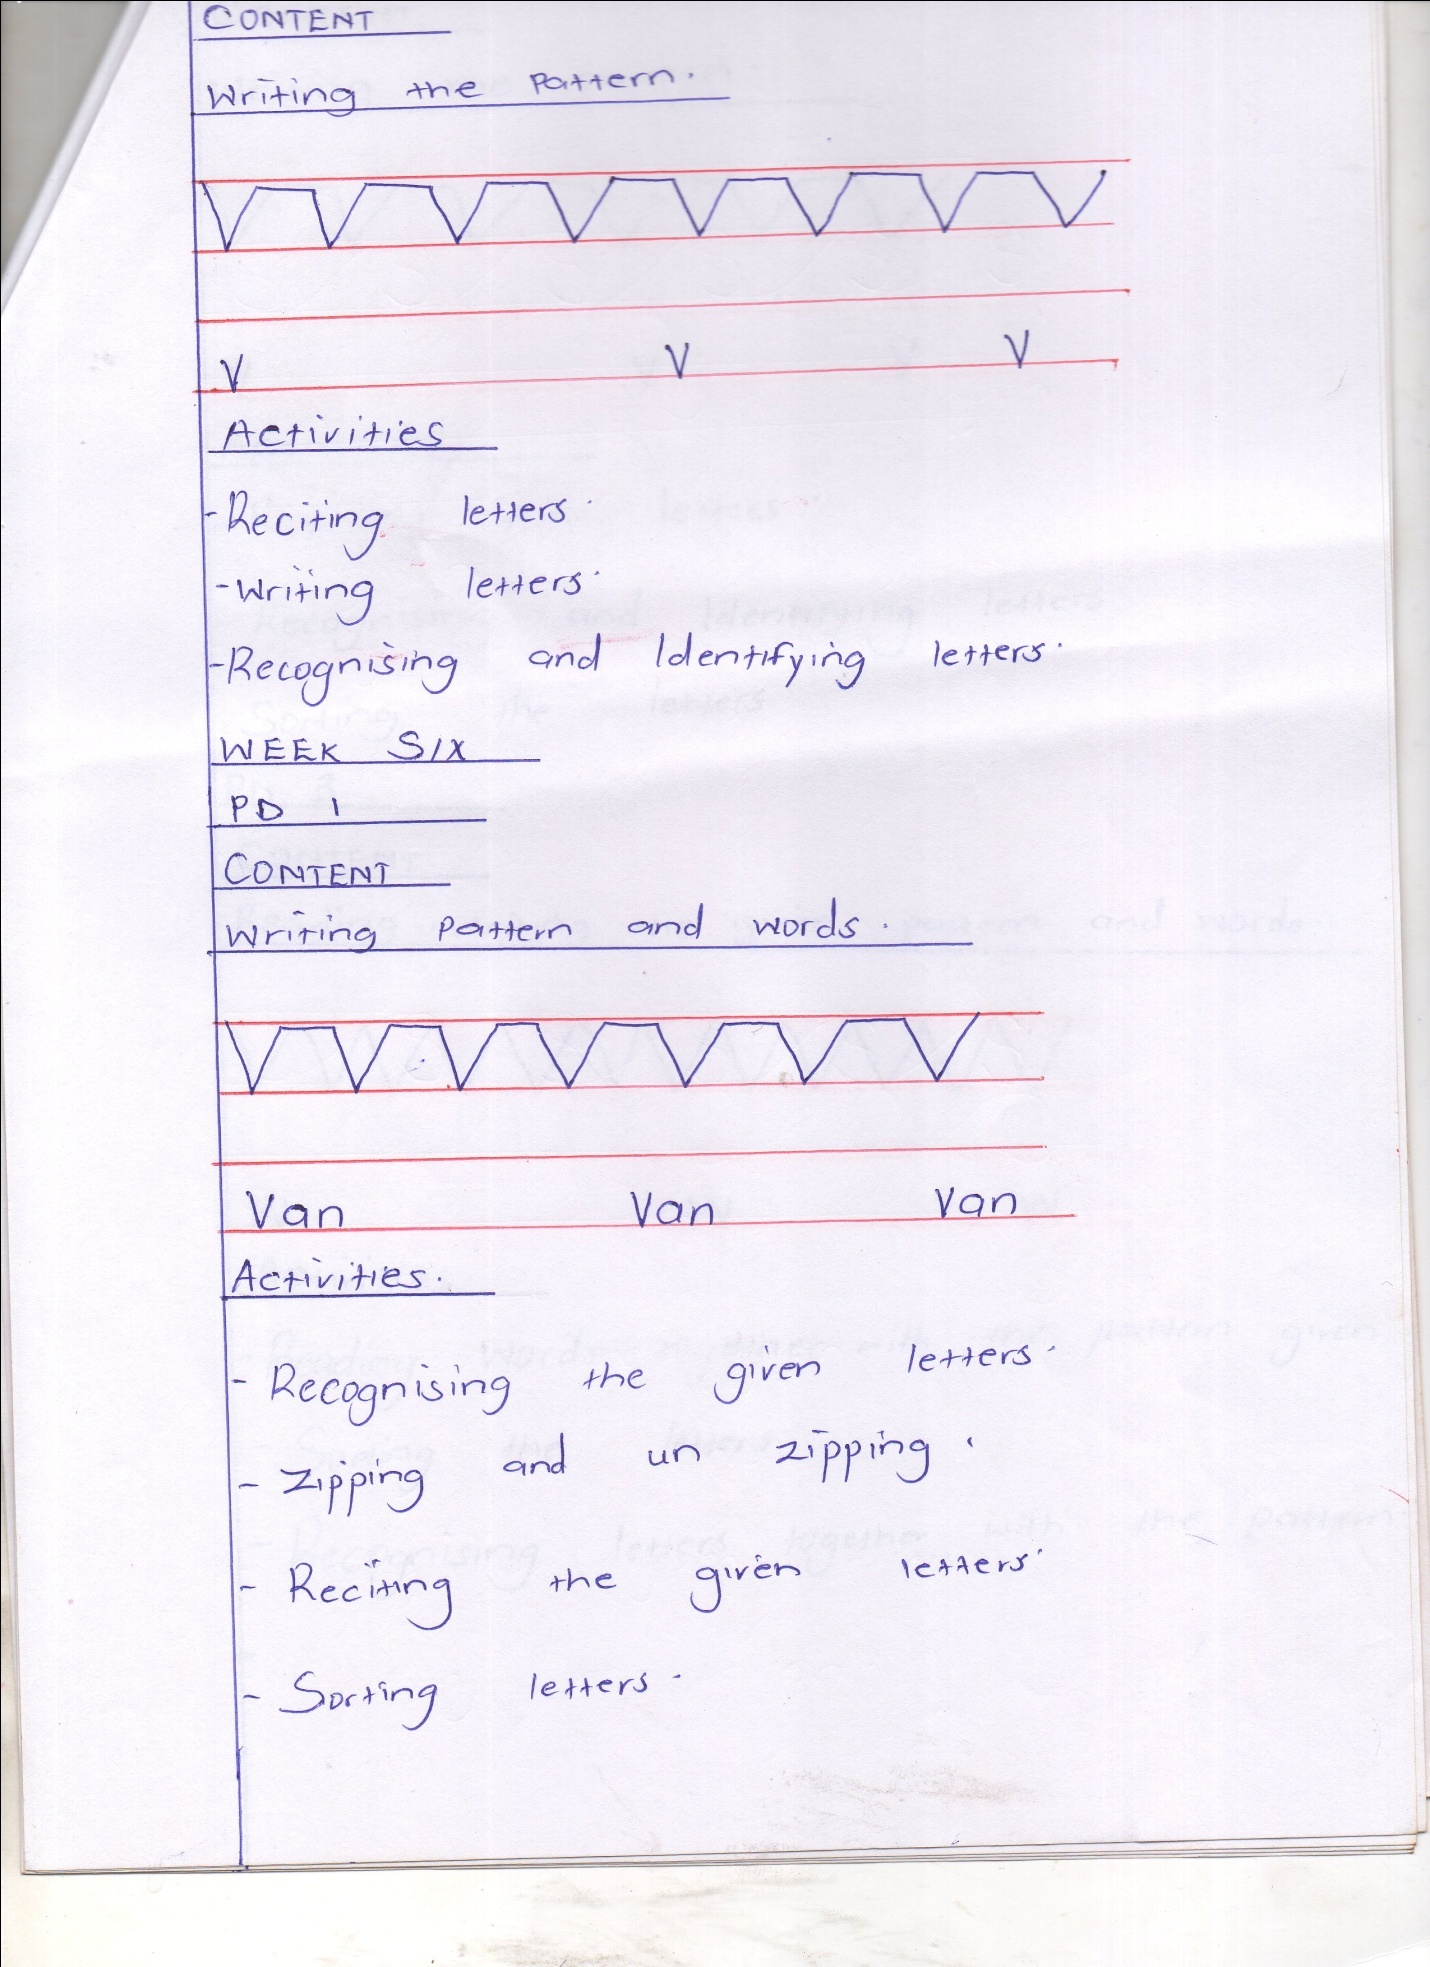 CONTENT
Writing the Pattern.
V V V
Activities
- Reciting letters.
- Writing letters.
- Recognising and Identifying letters.
WEEK SIX
PD 1
CONTENT
Writing Pattern and words.
Van Van Van
Activities.
- Recognising the given letters.
- Zipping and un zipping.
- Reciting the given letters.
- Sorting letters.